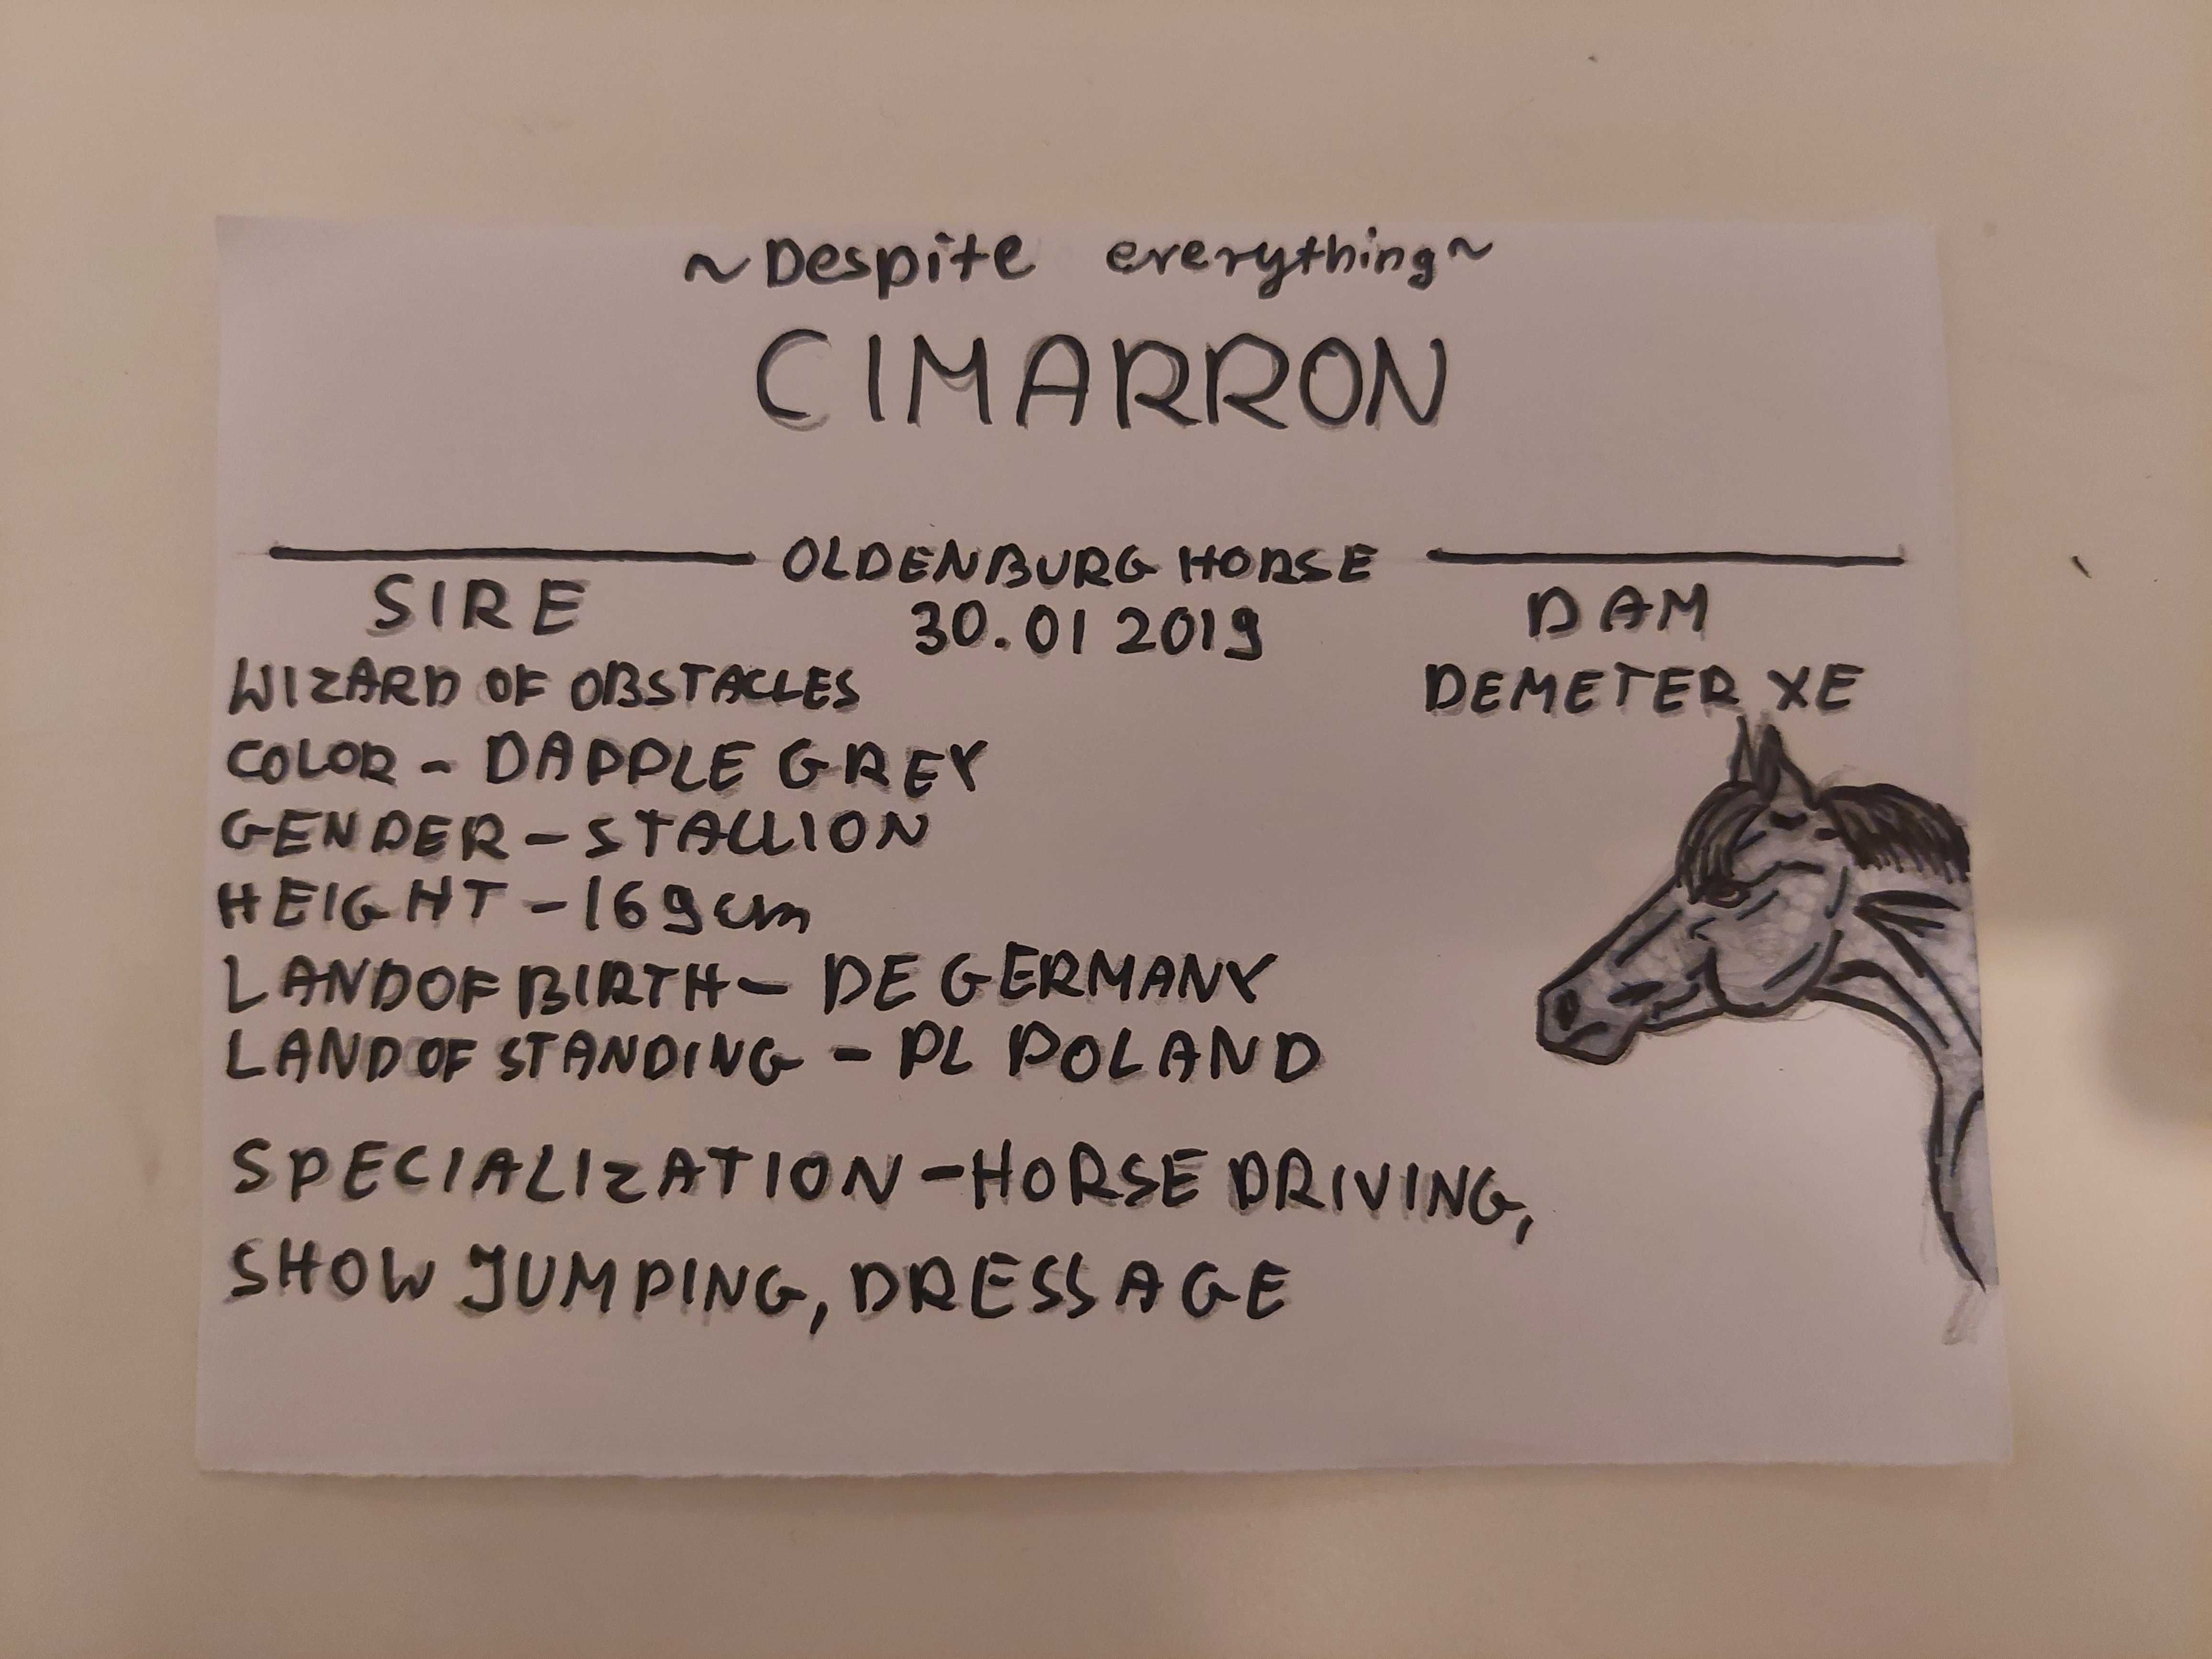 ~Despite everything~
CIMARRON
OLDENBURG HORSE
30.01 2019
SIRE
WIZARD OF OBSTACLES
DAM
DEMETER XE
COLOR - DAPPLE GREY
GENDER - STALLION
HEIGHT - 169cm
LAND OF BIRTH - DE GERMANY
LAND OF STANDING - PL POLAND
SPECIALIZATION - HORSE DRIVING,
SHOW JUMPING, DRESSAGE